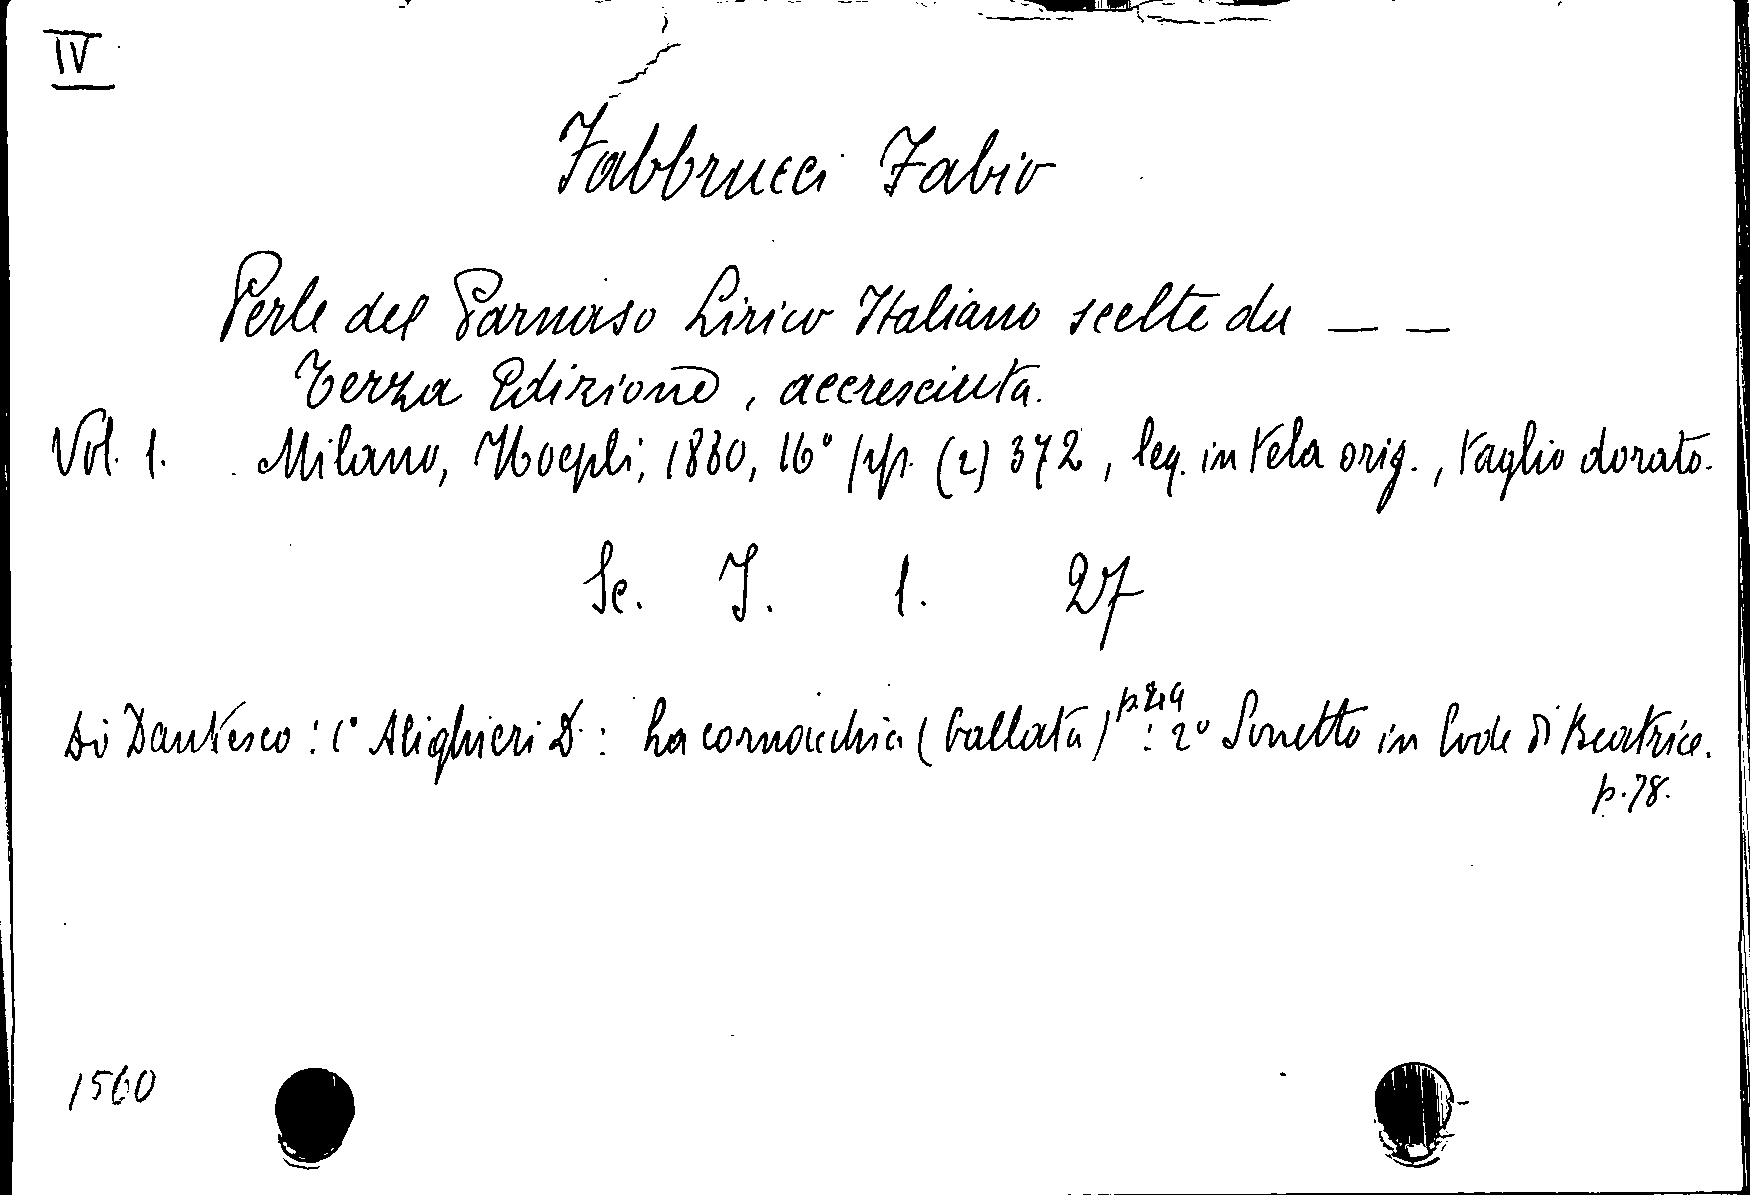 IV
Fabbrucci Fabio
Perle del Parnaso Lirico Italiano scelte da — —
Terza Edizione, accresciuta.
Vol. 1. Milano, Hoepli, 1880, 16° pp. (2) 372, leg. in tela orig., taglio dorato.
Sc. I. 1. 27
Di Dantesco: 1° Alighieri D.: La cornacchia (ballata) : 2° Sonetto in lode di Beatrice.
p. 78.
1560